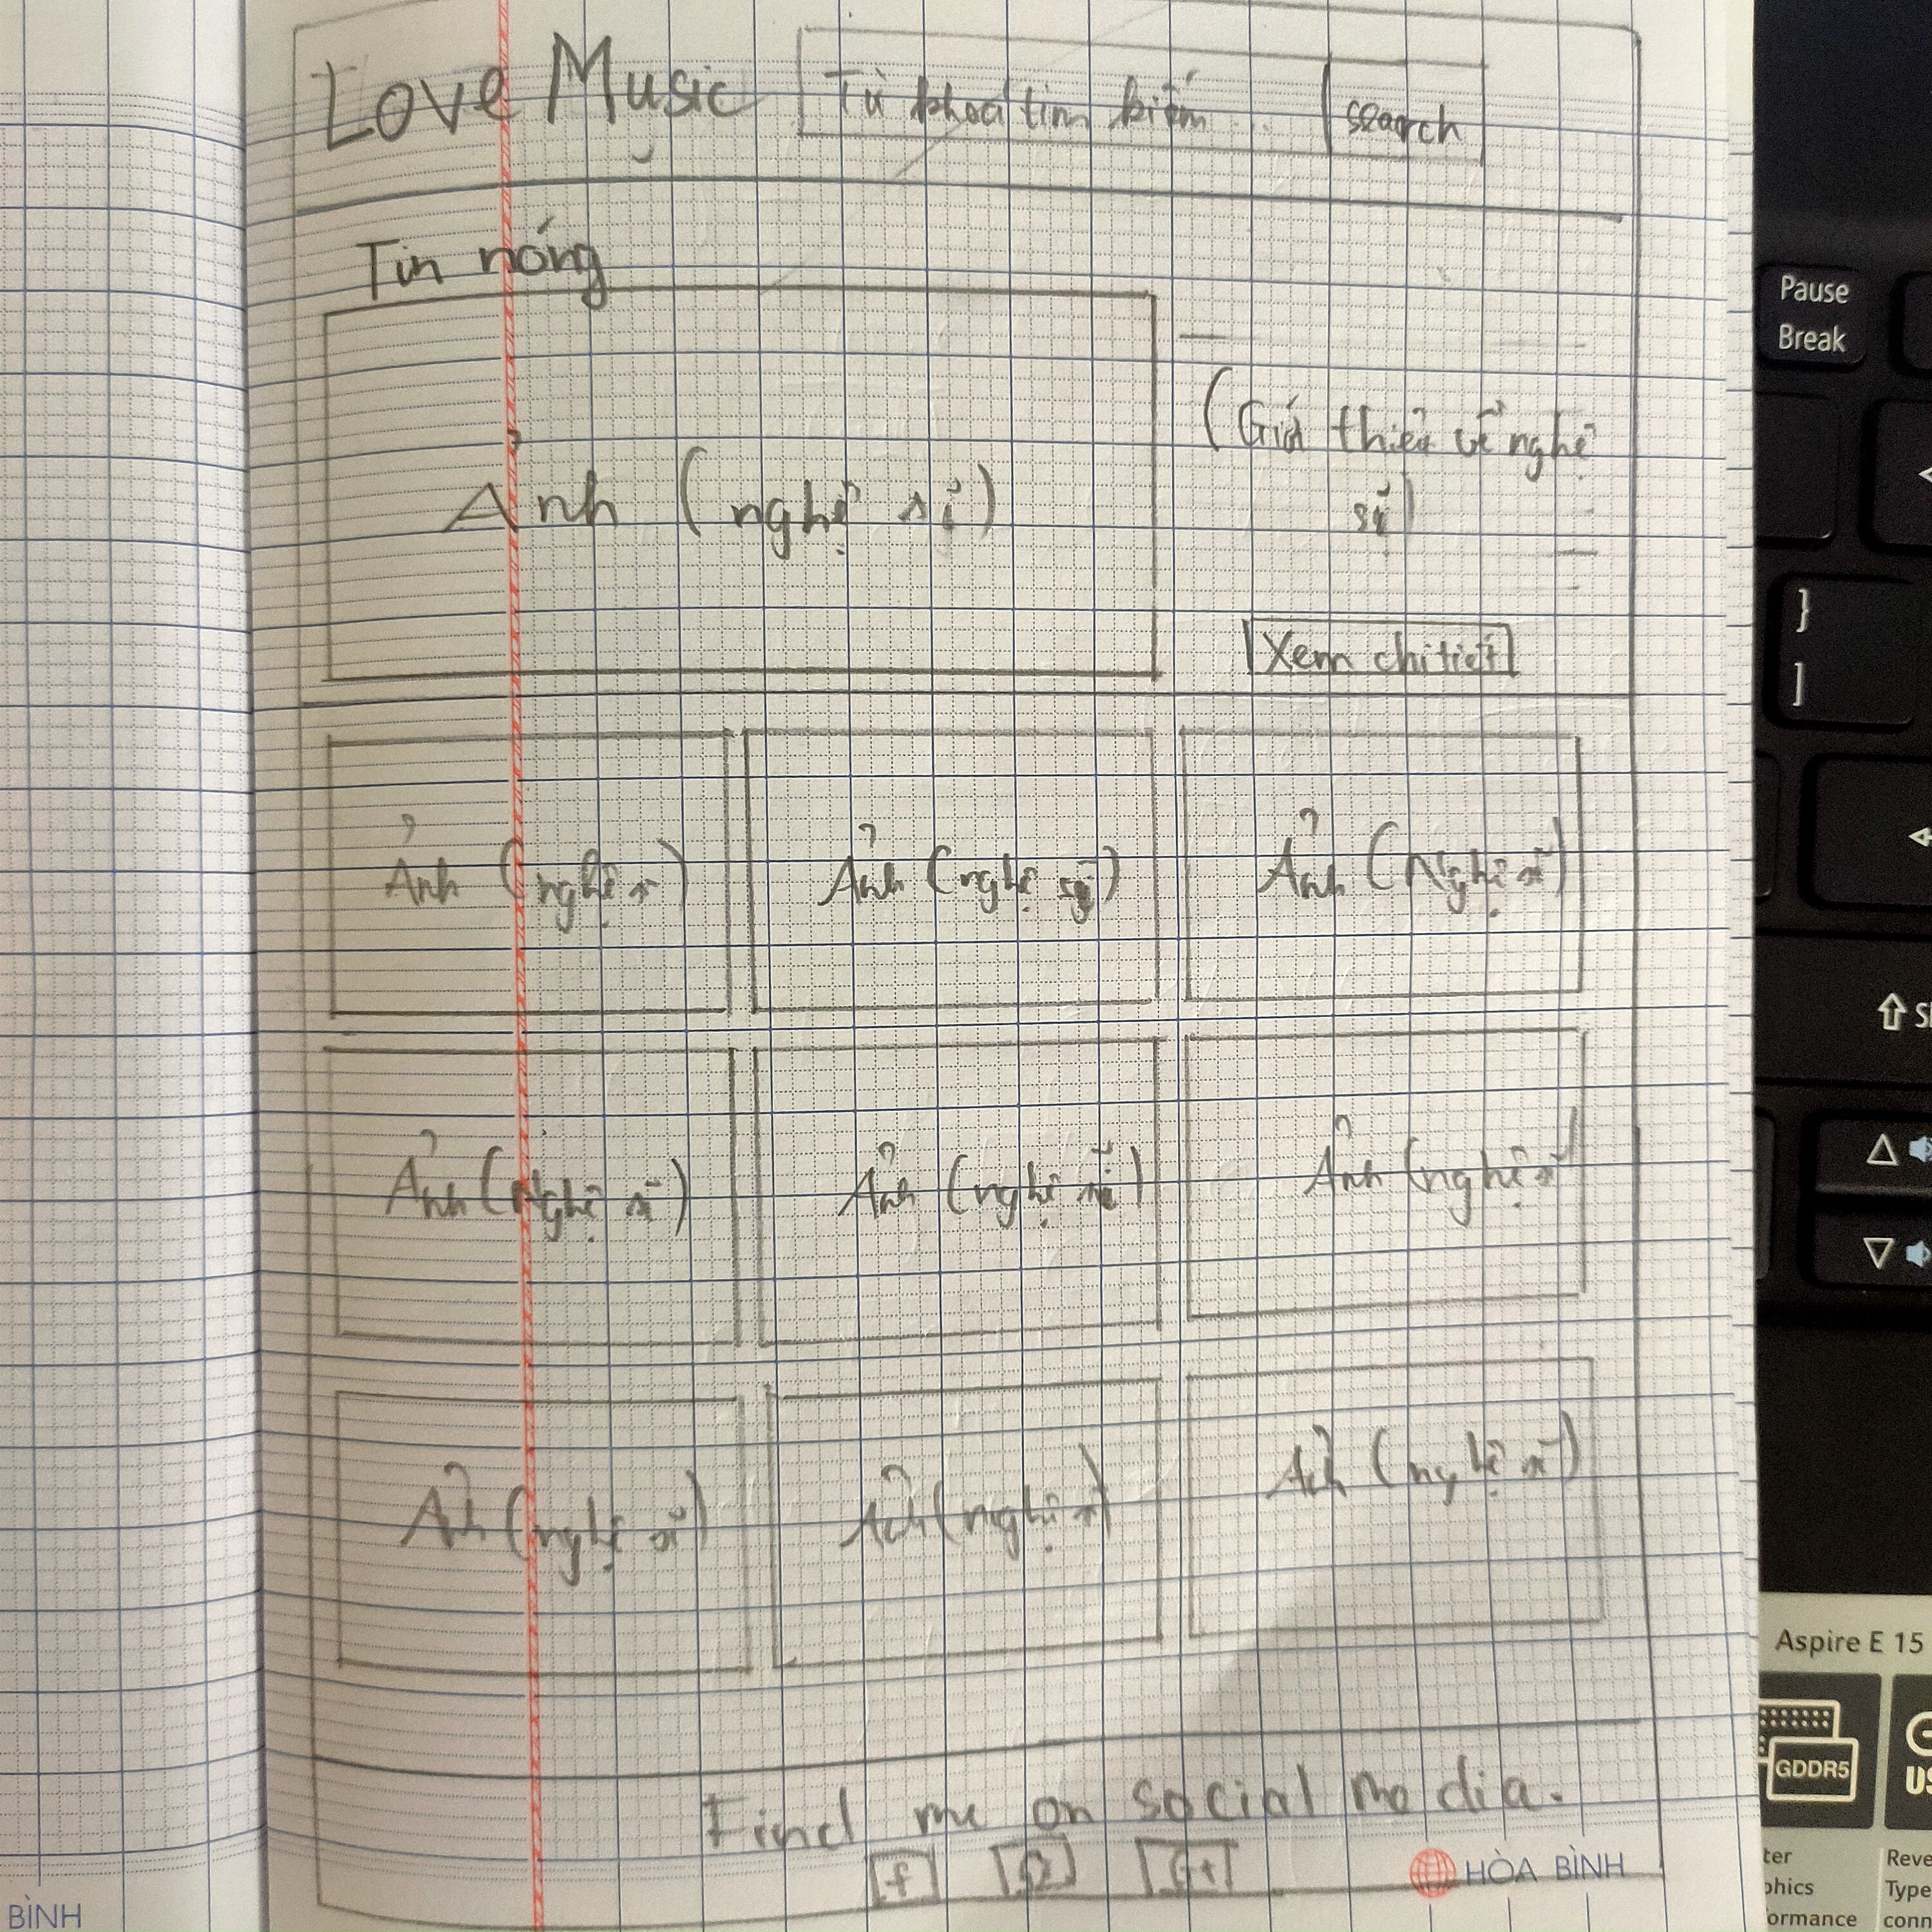 Love Music
Từ khoá tìm kiếm ...
search
Tin nóng
Ảnh (nghệ sĩ)
(Giới thiệu về nghệ
sĩ)
Xem chi tiết
Ảnh (nghệ sĩ)
Ảnh (nghệ sĩ)
Ảnh (Nghệ sĩ)
Ảnh (Nghệ sĩ)
Ảnh (nghệ sĩ)
Ảnh (nghệ sĩ)
Ảnh (nghệ sĩ)
Ảnh (nghệ sĩ)
Ảnh (nghệ sĩ)
Find me on social media.
f
G+
HÒA BÌNH
BÌNH
Pause
Break
}
]
Aspire E 15
GDDR5